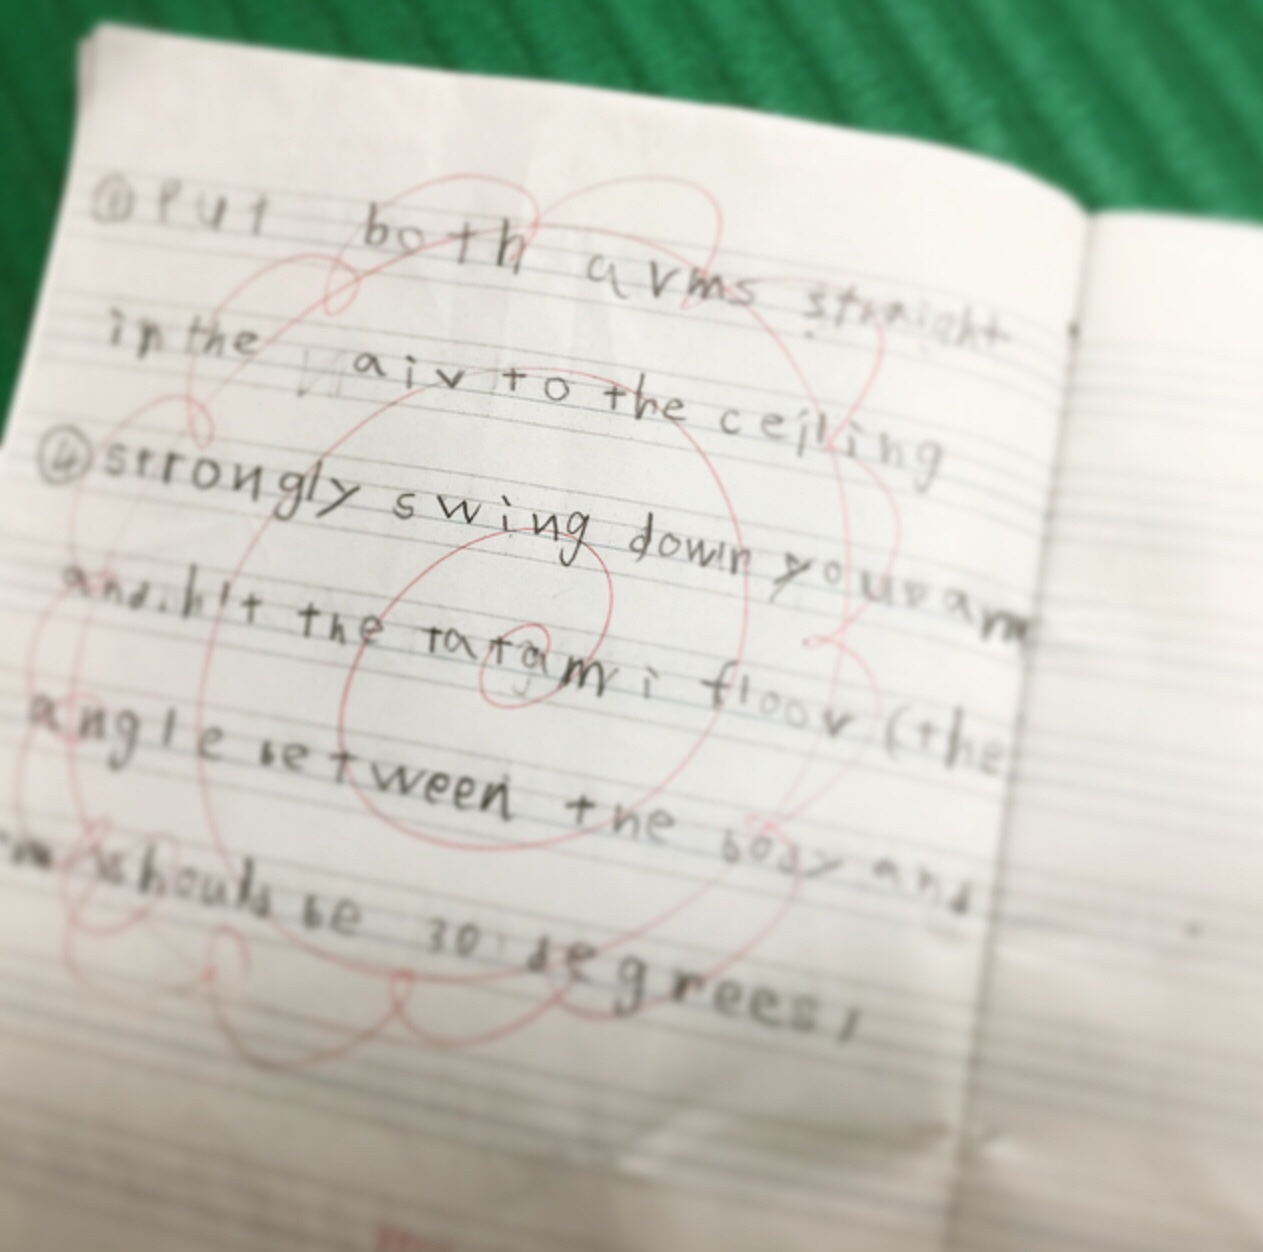 ① Put both arms straight
in the air to the ceiling
④ strongly swing down your arm
and. hit the tatami floor (the
angle between the body and
should be 30 degrees,